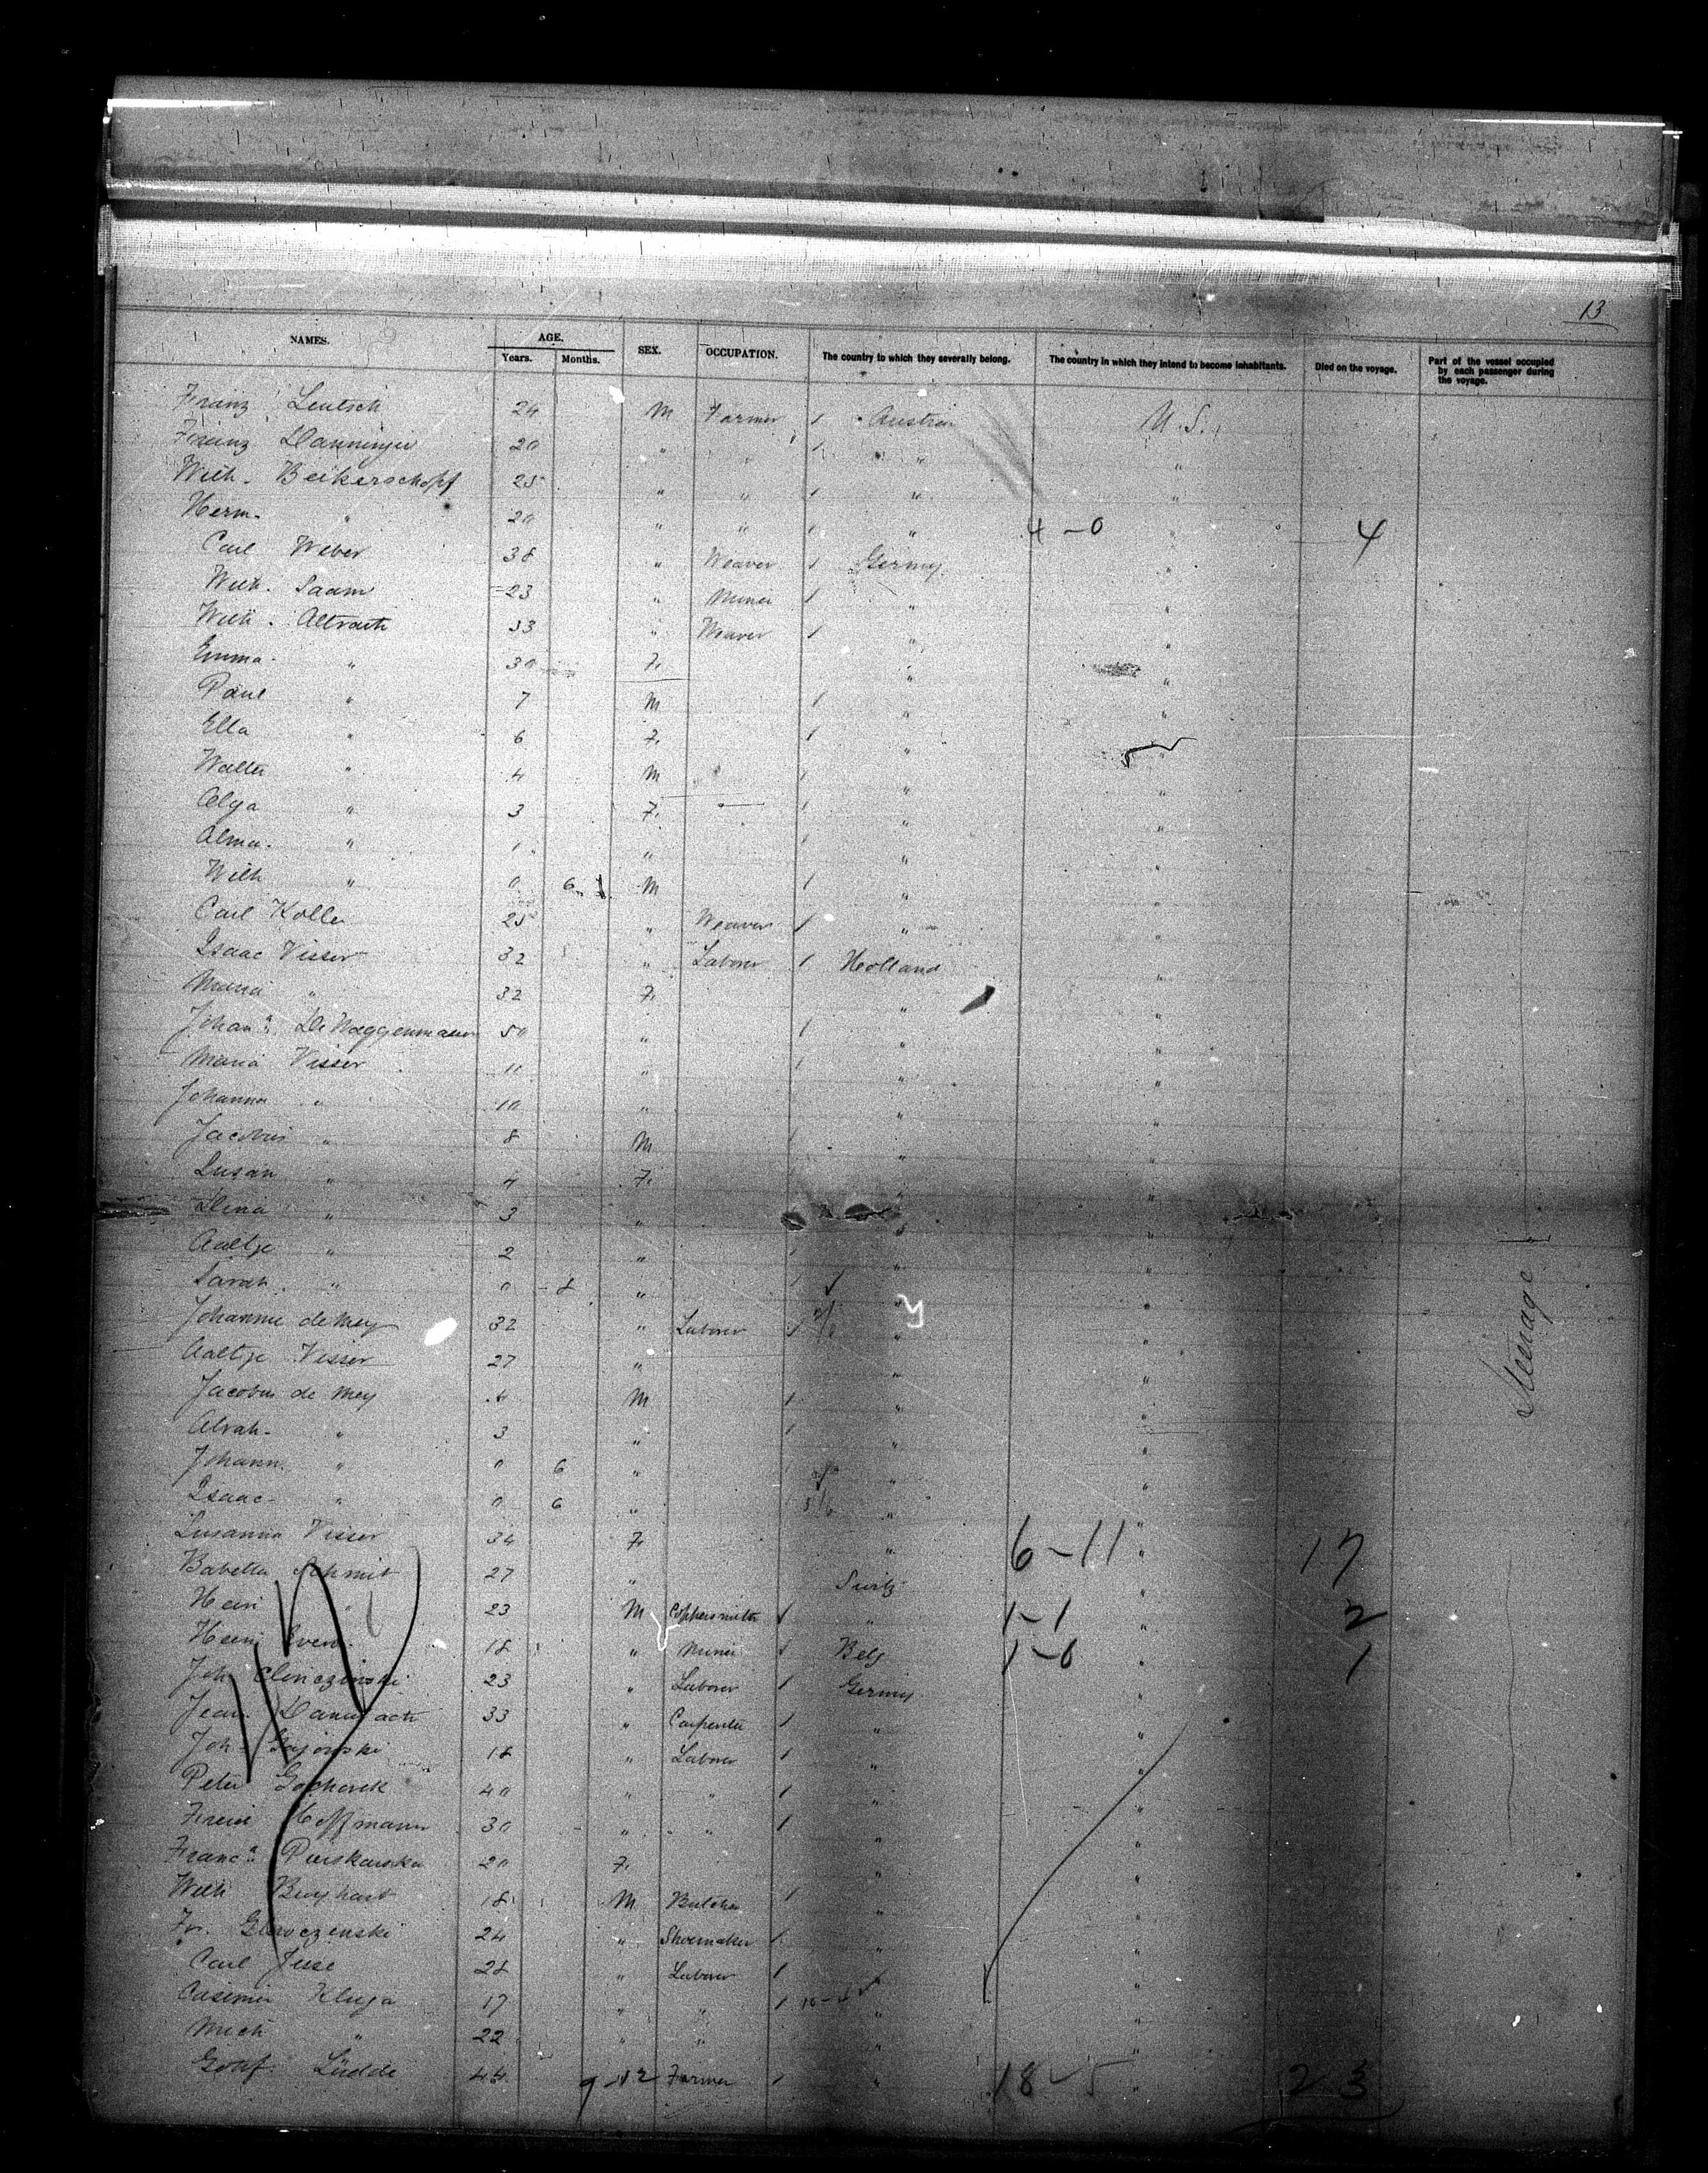 13
NAMES. AGE. Years. Months. SEX. OCCUPATION. The country to which they severally belong. The country in which they intend to become inhabitants. Died on the voyage. Part of the vessel occupied by each passenger during the voyage.
Franz Leutsch 24 M Farmer 1 Austria U.S.
Franz 20 " " 1 " "
Wilh. Beikerschopf 25 " " 1 " "
Herm. " 20 " " 1 " 4-0 " 4
Carl Weber 38 " Weaver 1 Germy "
Wilh. Saam 23 " Miner 1 " "
Wilh. Altrath 33 " Weaver 1 " "
Emma " 30 F. " "
Paul " 7 M 1 " "
Ella " 6 F. 1 "
Walter " 4 M 1 " "
Olga " 3 F. 1 " "
Alma. " 1 " 1 " "
Wilh " 0 6 M 1 " "
Carl Koller 25 " Weaver 1 " "
Isaac Visser 32 " Laborer 1 Holland "
Maria " 32 F. " "
Johanª 50 " 1 " "
Maria Visser 11 " 1 " "
Johanna " 10 " " "
Jacobus " 8 M 1 " "
Susan " 4 F. " "
Dina " 3 " " "
Aaltje " 2 " 1 " "
Sarah. " 0 8 " 1 " "
Johannes de Mey 32 " Laborer 1 " "
Aaltje Visser 27 " " "
Jacobus de Mey 4 M 1 " "
Abrah. " 3 " 1 " "
Johann. " 0 6 " " "
Isaac " 0 6 " " "
Susanna Visser 34 F. " 6-11 " 17
Babetta Schmit 27 " Switz "
Heri " 23 M Coppersmith 1 " 1-1 " 2
Henri 18 " Miner 1 Belg 1-0 " 1
Joh. 23 " Laborer 1 Germy. "
Jean 33 " Carpenter 1 " "
Joh. Gajowski 18 " Laborer 1 " "
Peter 40 " " 1 " "
Hoffmann 30 " " 1 " "
Francª 20 F. " "
Wilh Burghart 18 M Butcher 1 " "
Fr. 24 " Shoemaker 1 " "
Carl 28 " Laborer 1 "
Casimir Kluga 17 " " 1 " "
Mich " 22 " " " "
Gottf. Lüdde 44 Farmer 1 " 18-5 " 23
Steerage